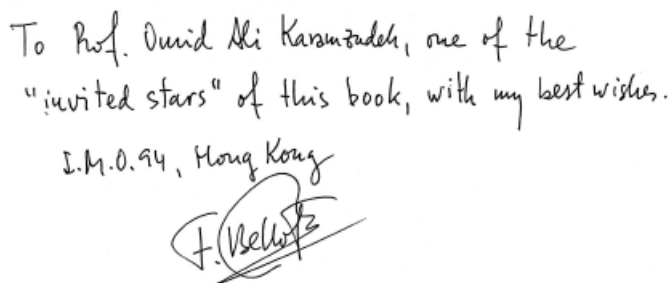 To Prof. Omid Ali Karamzadeh, one of the
"invited stars" of this book, with my best wishes.
I.M.O.94, Hong Kong
F. Bellot